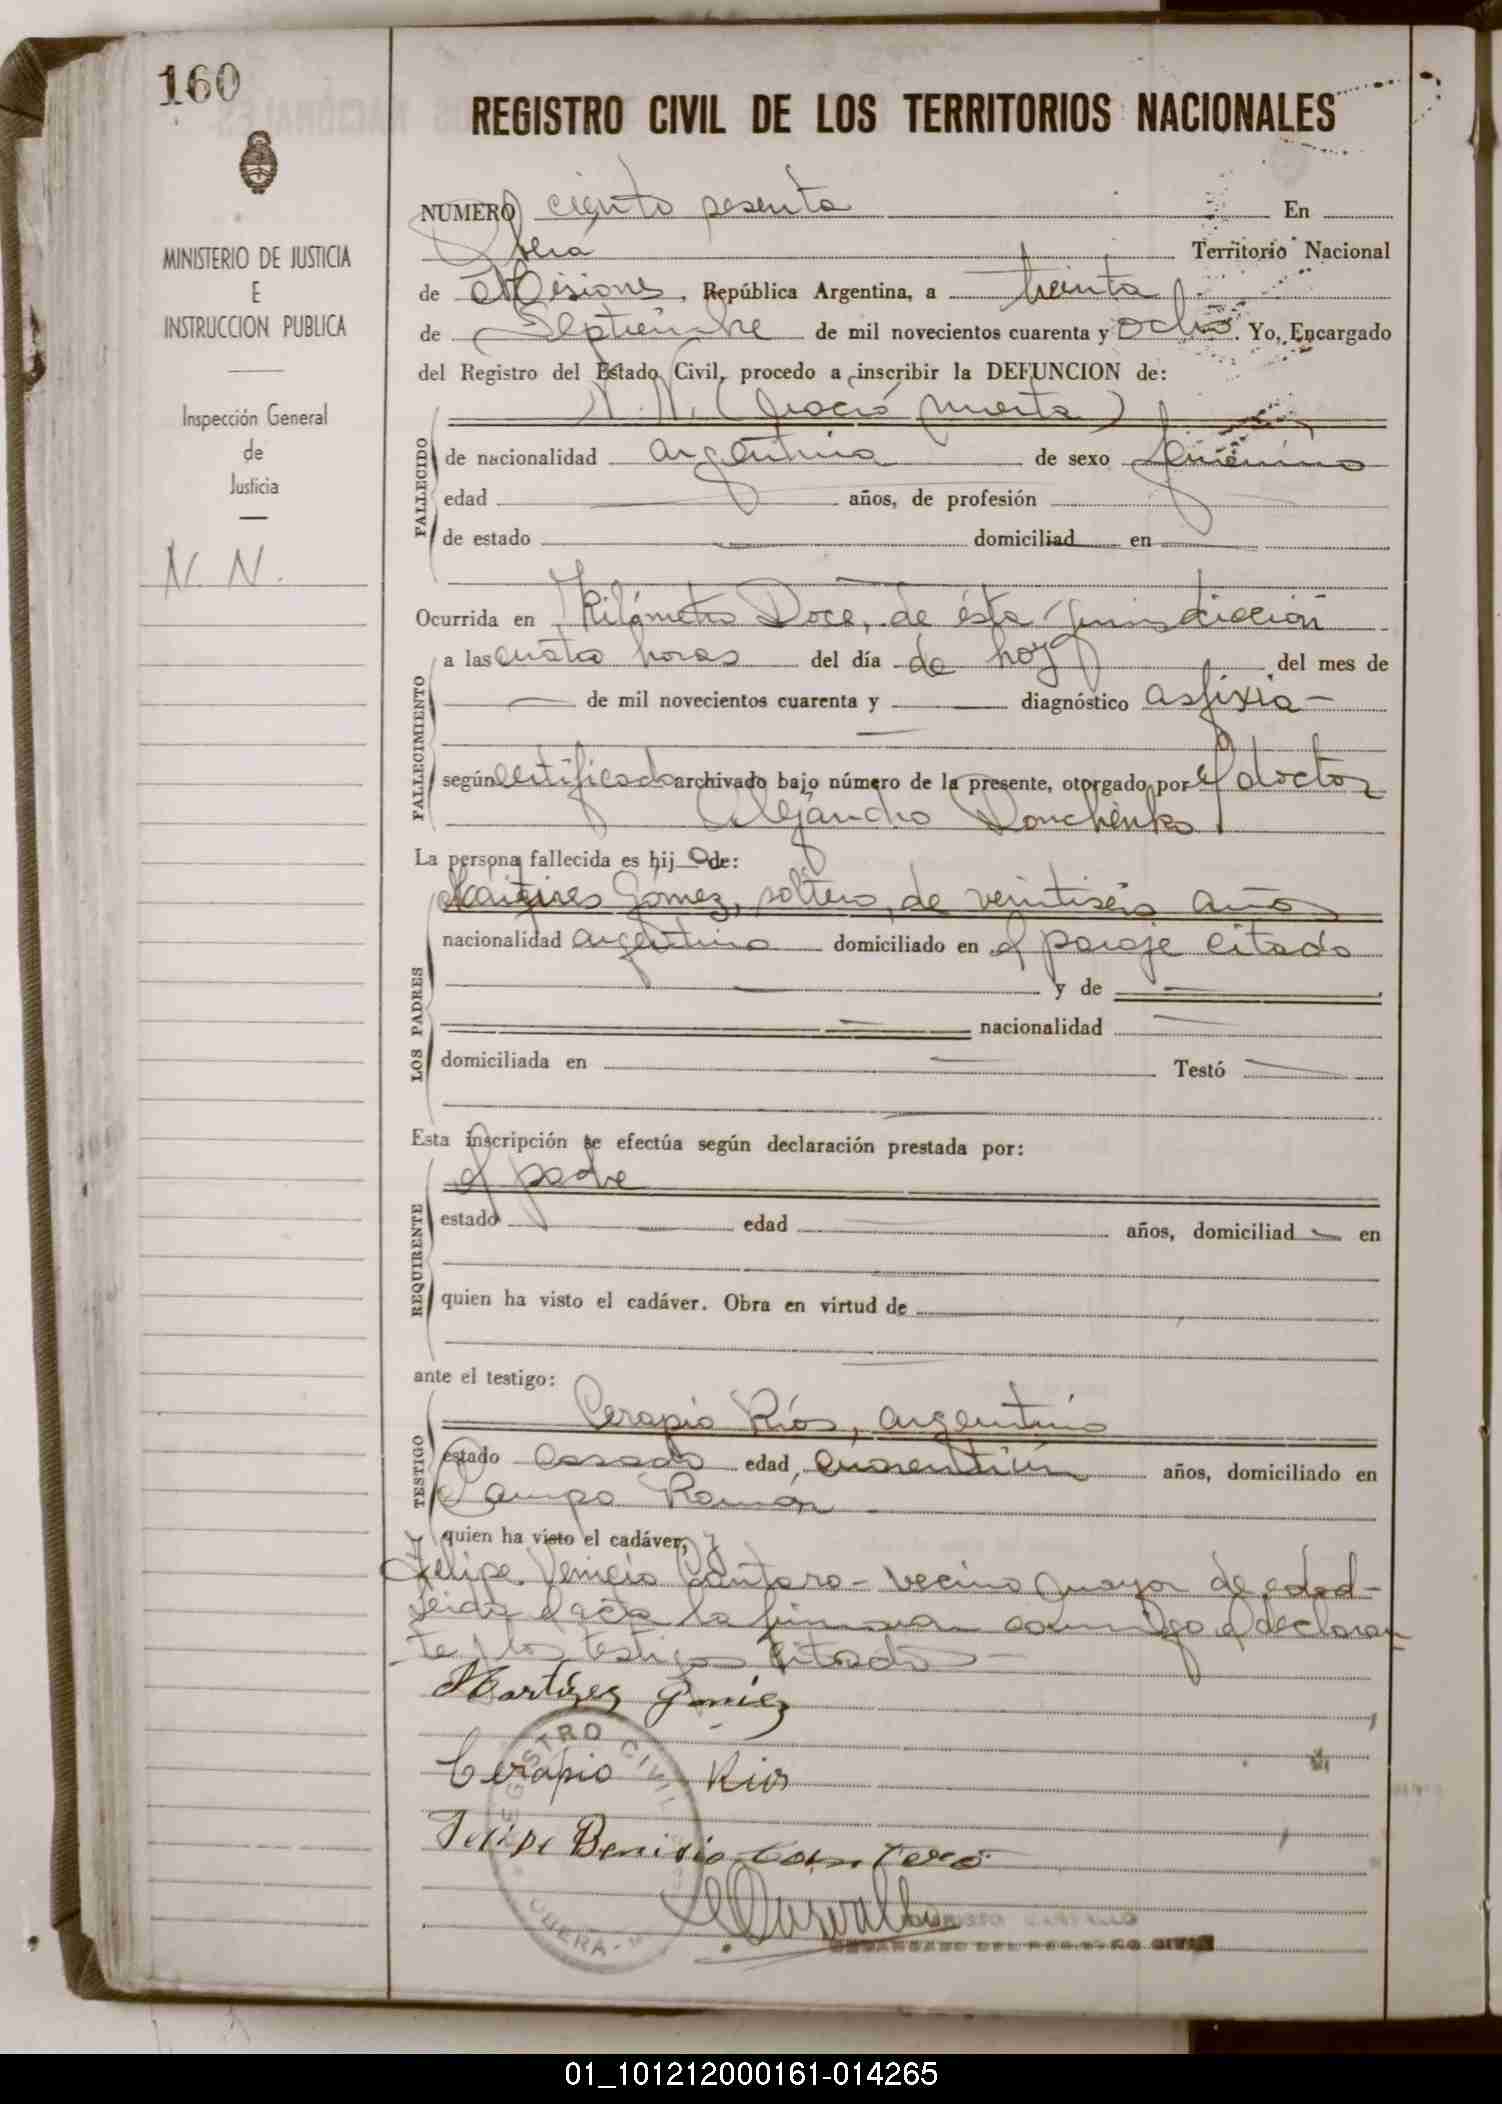 160
REGISTRO CIVIL DE LOS TERRITORIOS NACIONALES
MINISTERIO DE JUSTICIA
E
INSTRUCCION PUBLICA
Inspección General
de
Justicia
N. N.
NUMERO ciento sesenta En
Oberá Territorio Nacional
de Misiones, República Argentina, a treinta
de Septiembre de mil novecientos cuarenta y ocho. Yo, Encargado
del Registro del Estado Civil, procedo a inscribir la DEFUNCION de:
N. N. (Nació muerta)
FALLECIDO
de nacionalidad argentina de sexo femenino
edad años, de profesión
de estado domiciliad en
Ocurrida en Kilómetro Doce, de ésta jurisdicción
FALLECIMIENTO
a las cuatro horas del día de hoy del mes de
de mil novecientos cuarenta y diagnóstico asfixia
según certificado archivado bajo número de la presente, otorgado por el doctor
Alejandro
La persona fallecida es hij a de:
LOS PADRES
Gómez, soltero, de veintiséis años
nacionalidad argentino domiciliado en el paraje citado
y de
nacionalidad
domiciliada en Testó
Esta inscripción se efectúa según declaración prestada por:
REQUIRENTE
el padre
estado edad años, domiciliad en
quien ha visto el cadáver. Obra en virtud de
ante el testigo:
TESTIGO
Cerapio Ríos, argentino
estado casado edad cuarentiún años, domiciliado en
Campo Ramón
quien ha visto el cadáver, y
Felipe Venicio Cantero - vecino mayor de edad -
Leida el acta la firman conmigo el declaran
te y los testigos citados -
Martires Gomez
Cerapio Rios
Felipe Benisio Cantero
REGISTRO CIVIL
OBERA - M
ENCARGADO DEL REGISTRO CIVIL
01_101212000161-014265